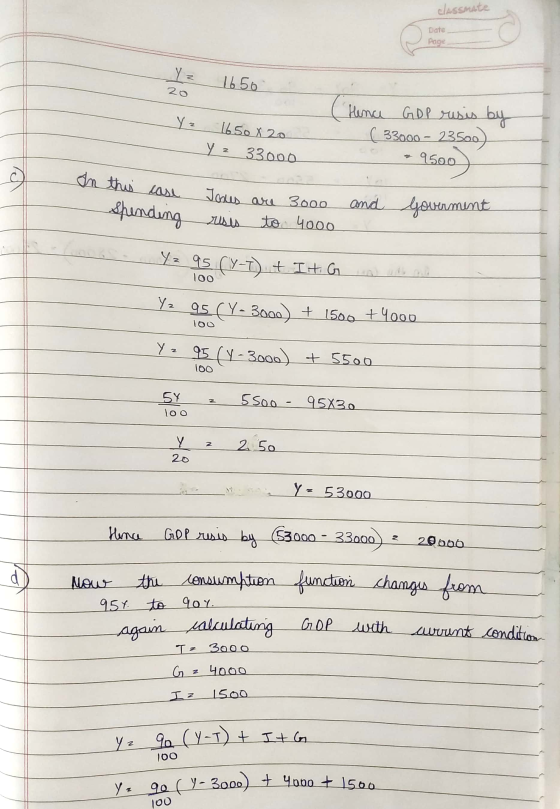 classmate
Date
Page
Y/20 = 1650
Y = 1650 x 20
Y = 33000
(Hence GDP rises by
(33000 - 23500)
= 9500)
c) In this case Taxes are 3000 and Government
Spending rises to 4000
Y = 95/100 (Y-T) + I + G
Y = 95/100 (Y-3000) + 1500 + 4000
Y = 95/100 (Y-3000) + 5500
5Y/100 = 5500 - 95x30
Y/20 = 2650
Y = 53000
Hence GDP rises by (53000 - 33000) = 20000
d) Now the consumption function changes from
95% to 90%.
again calculating GDP with current condition
T = 3000
G = 4000
I = 1500
Y = 90/100 (Y-T) + I + G
Y = 90/100 (Y-3000) + 4000 + 1500